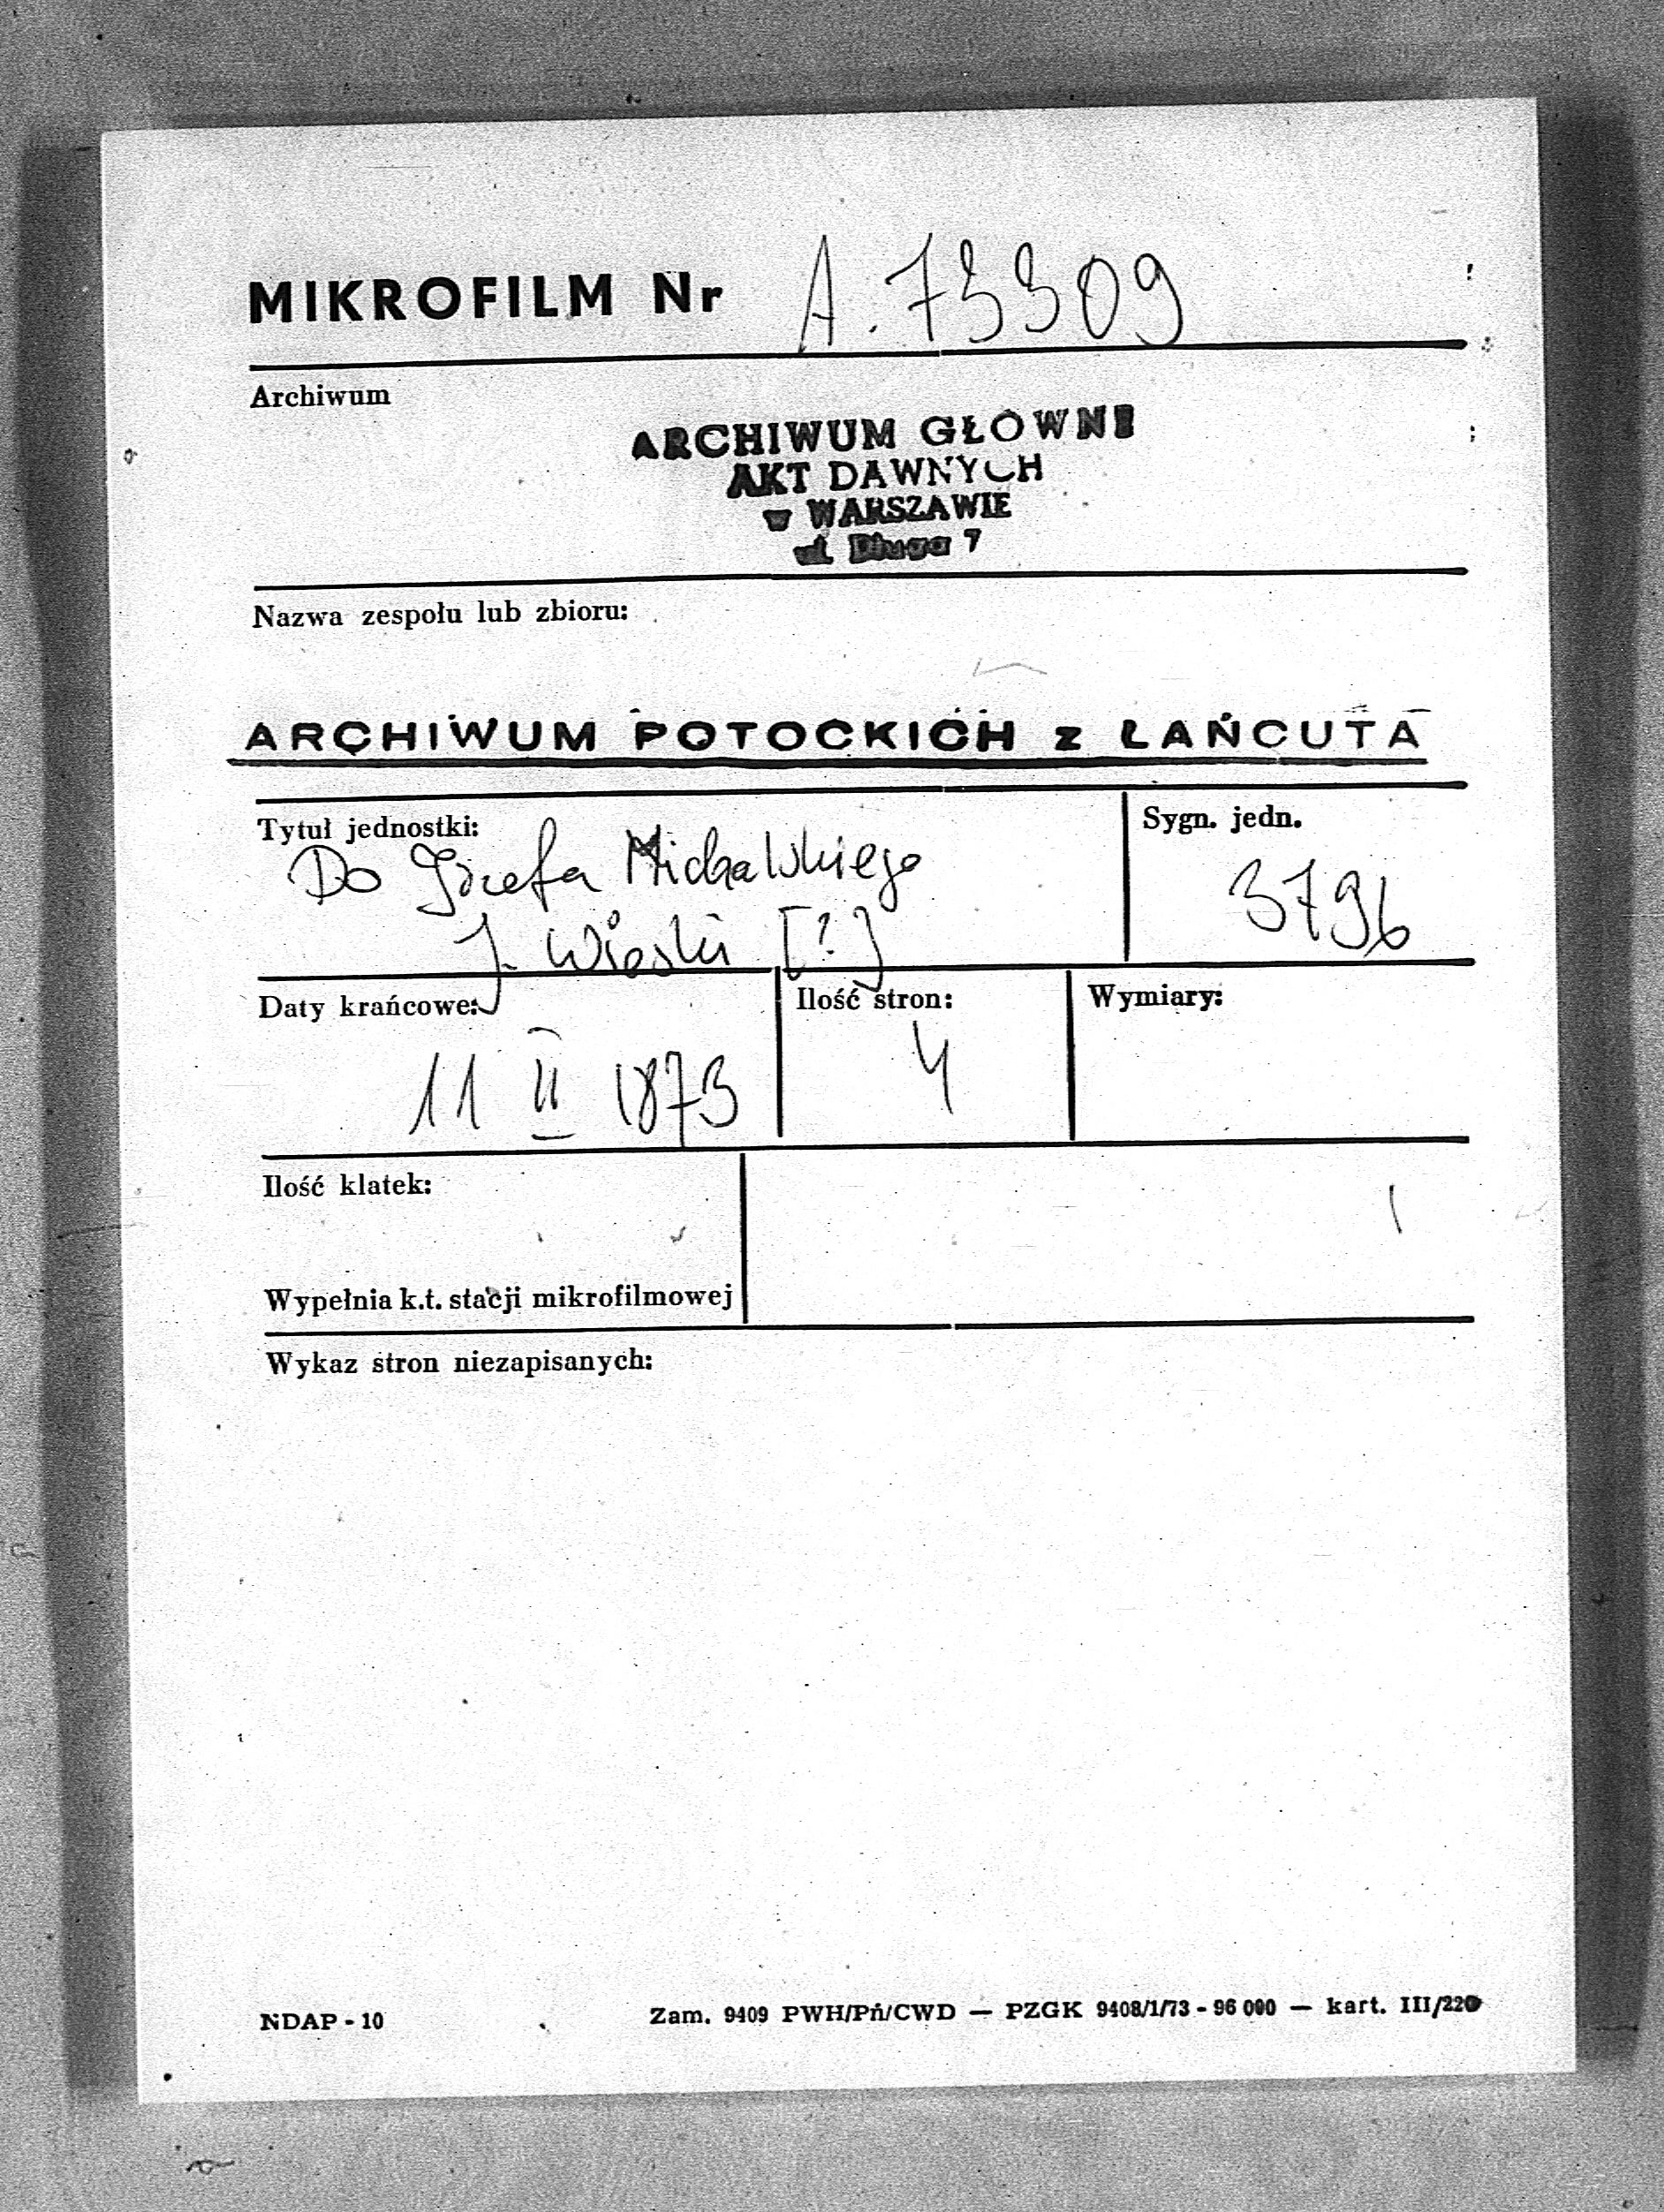 MIKROFILM Nr A. 73309
Archiwum
ARCHIWUM GŁÓWNE
AKT DAWNYCH
w WARSZAWIE
ul. Długa 7
Nazwa zespołu lub zbioru:
ARCHIWUM POTOCKICH z ŁAŃCUTA
Tytuł jednostki:
Sygn. jedn.
Do Józefa Michalskiego
J. [?]
3796
Daty krańcowe:
Ilość stron:
Wymiary:
11 II 1873
4
Ilość klatek:
Wypełnia k.t. stacji mikrofilmowej
Wykaz stron niezapisanych:
NDAP - 10
Zam. 9409 PWH/Pń/CWD — PZGK 9408/1/73 - 96 000 — kart. III/220